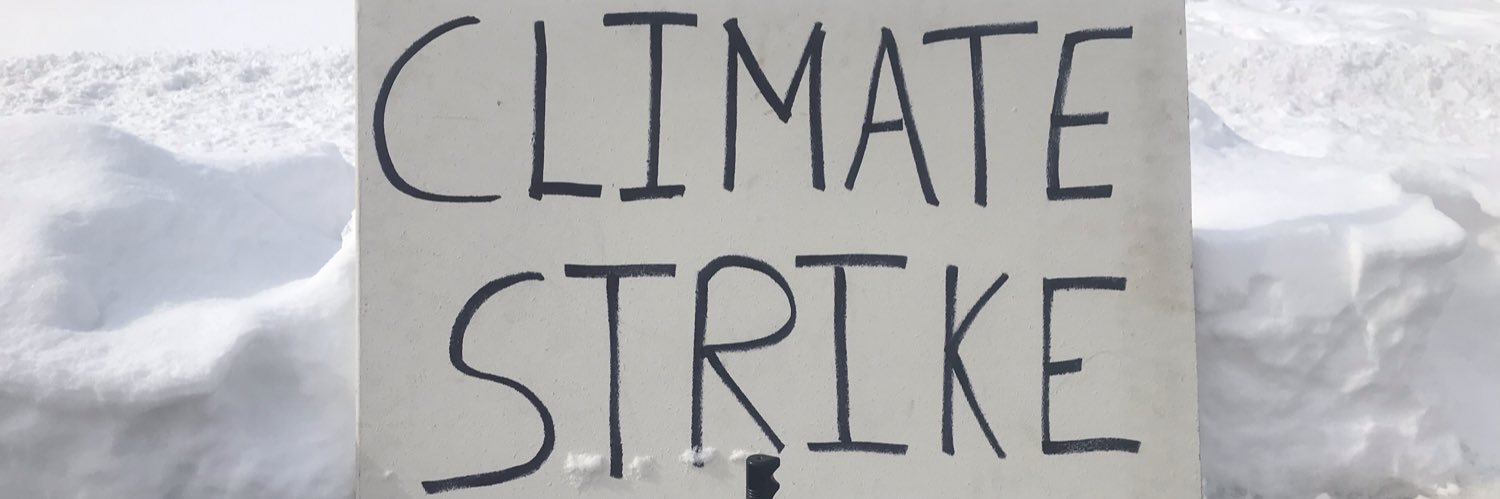 CLIMATE
STRIKE